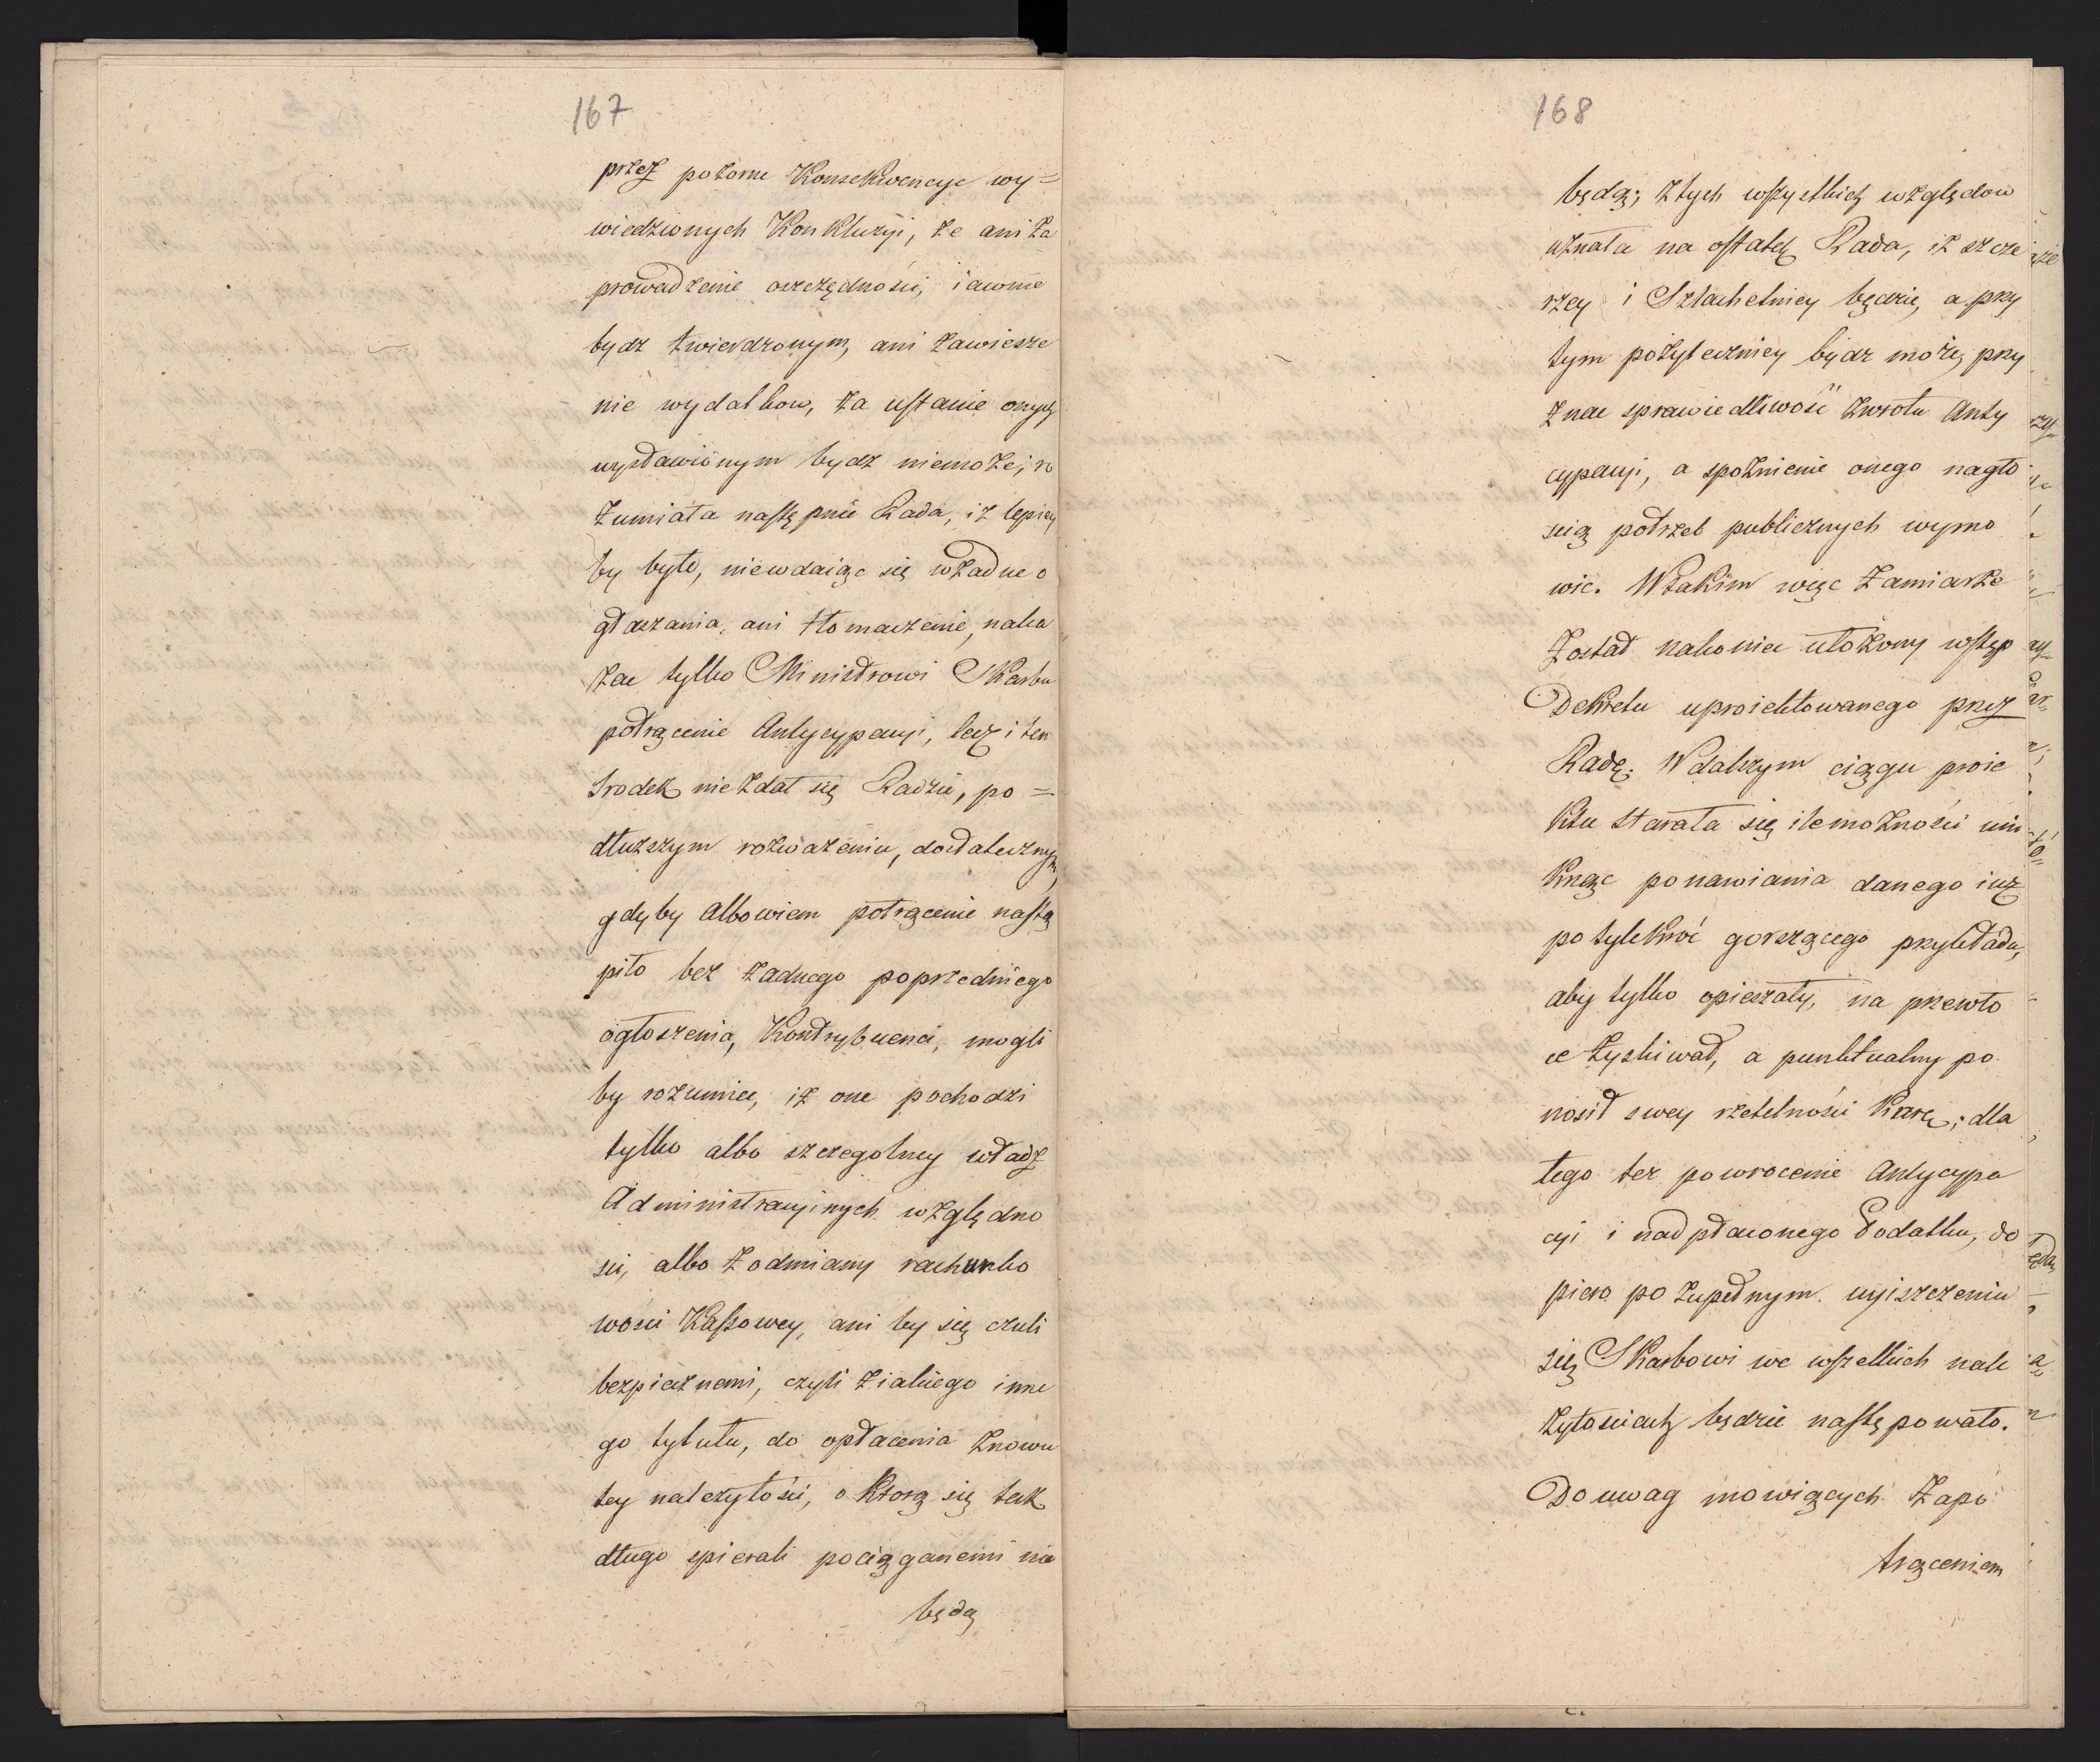 167
przez pozorne Konsekwencye wy=
wiedzionych Konkluzyi, że ani za
prowadzenie oszczędności, iawnie
bydz twierdzonym, ani zawiesze
nie wydatkow, za ustanie onych
wystawionym bydz niemoże; ro
zumiała następnie Rada, iż lepiey
by było, niewdaiąc się wżadne o
głaszania, ani tłomaczenie, naka
zac tylko Ministrowi Skarbu
potrącenie Antycypacyi, lecz i ten
srodek niezdał się Radzie, po=
dłuższym rozważeniu, dostatecznym,
gdyby albowiem potrącenie nastą
piło bez żadnego poprzedniego
ogłoszenia, Kontrybuenci, mogli
by rozumiec, iż one pochodzi
tylko albo szczegolney władz
Administracyinych względno
sci, albo z odmiany rachunko
wosci Kassowey, ani by się czuli
bezpiecznemi, czyli z iakiego inne
go tytułu, do opłacenia znowu
tey należytości, o ktorą się tak
długo spierali pociąganemi nie
będą
168
będą; z tych wszystkich względow
uznała na ostatek Rada, iż szcze
rzey i Szlachetniey będzie, a przy
tym pożyteczniey bydz może, przy
znac sprawiedliwość zwrotu Anty
cypacyi, a spoźnienie onego nagło
scią potrzeb publicznych wymo
wic. W takim więc zamiarze
został nakoniec ułożony wstęp
Dekretu uproiektowanego przez
Radę. W dalszym ciągu proie
ktu starała się ile możności uni
knąc ponawiania danego iuż
po tylekroć gorszącego przykładu,
aby tylko opieszały, na przewło
ce zyskiwał, a punktualny po
nosił swey rzetelności karę; dla
tego tez powrocenie Antycypa
cyi i nadpłaconego Podatku, do
piero po zupełnym uyiszczeniu
się Skarbowi we wszelkich nale
żytosciach będzie następowało.
Do uwag mowiących za po
trąceniem